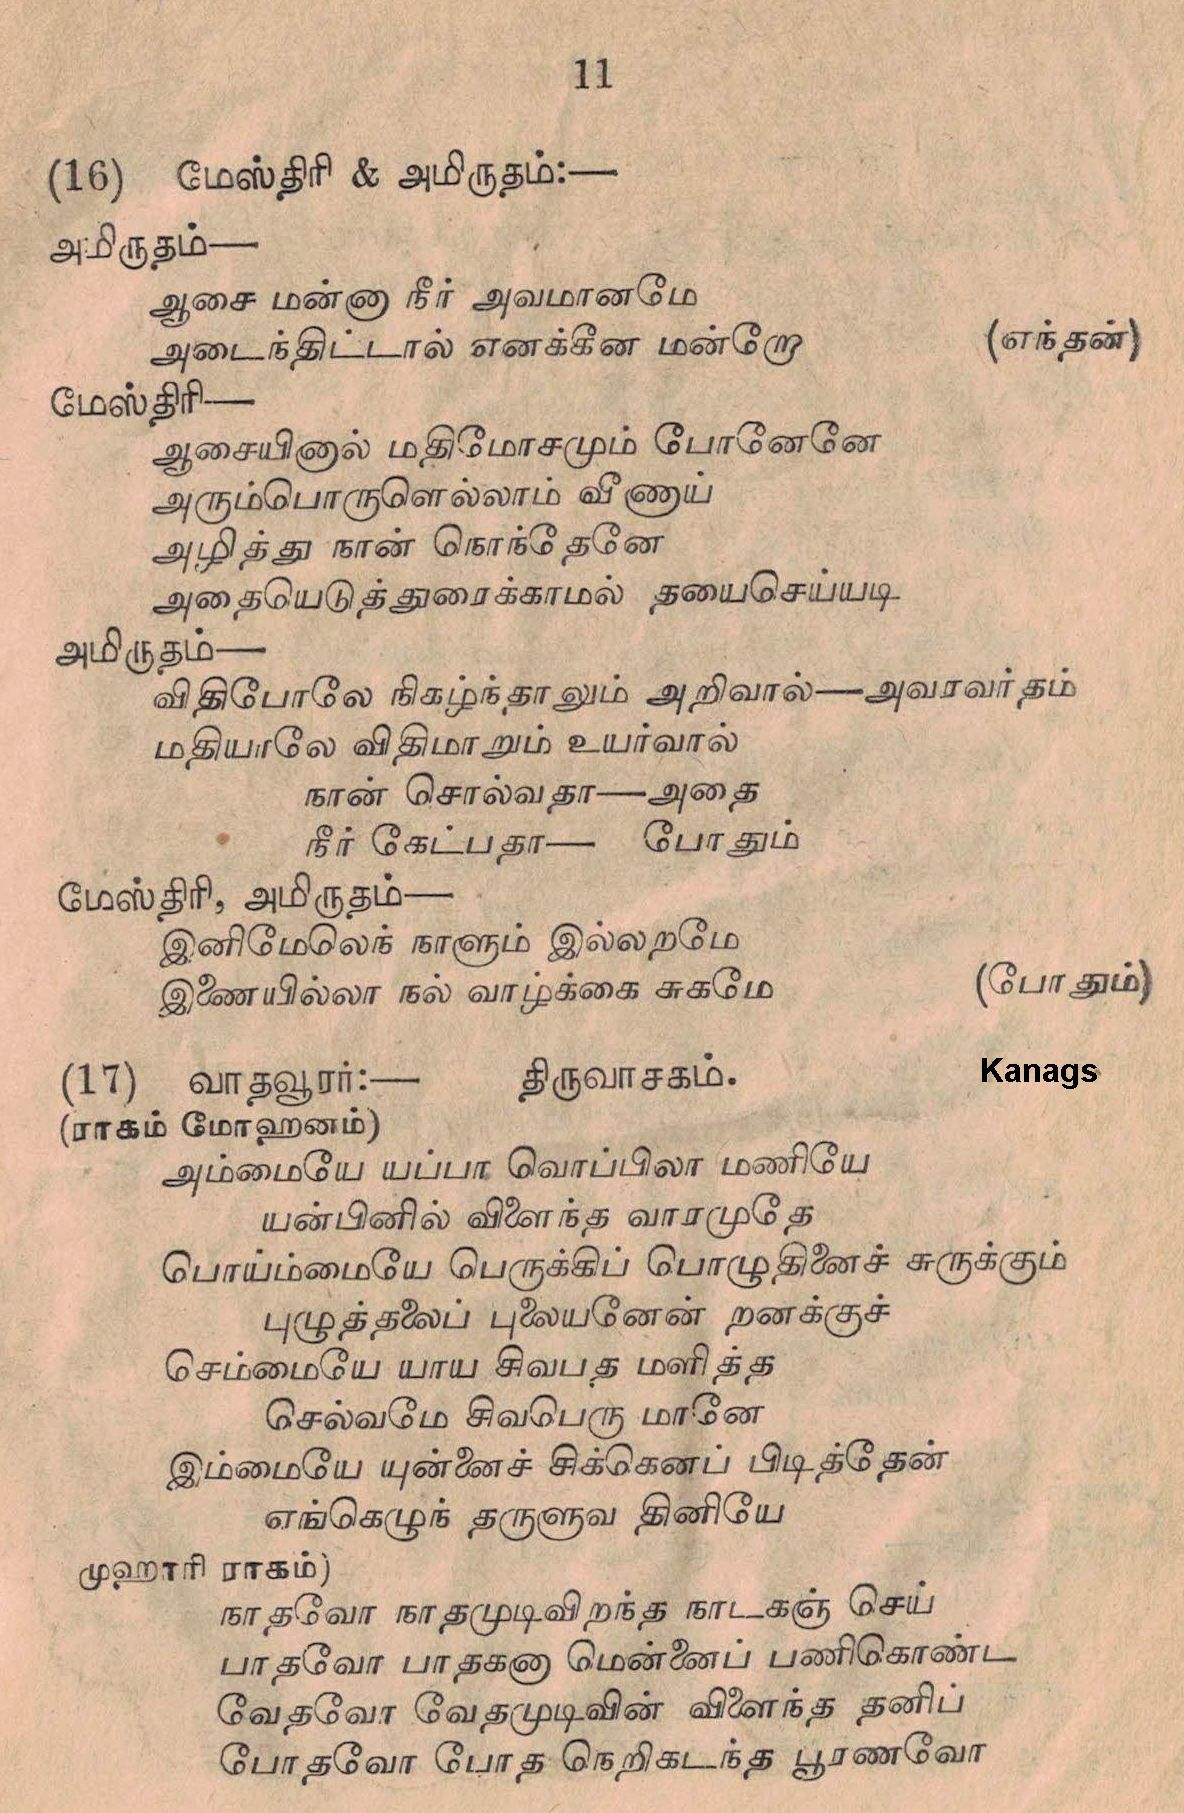 11
(16) மேஸ்திரி & அமிருதம்:—
அமிருதம்—
ஆசை மன்னா நீர் அவமானமே
அடைந்திட்டால் எனக்கீன மன்றோ (எந்தன்)
மேஸ்திரி—
ஆசையினால் மதிமோசமும் போனேனே
அரும்பொருளெல்லாம் வீணாய்
அழித்து நான் நொந்தேனே
அதையெடுத்துரைக்காமல் தயைசெய்யடி
அமிருதம்—
விதிபோலே நிகழ்ந்தாலும் அறிவால்—அவரவர்தம்
மதியாலே விதிமாறும் உயர்வால்
நான் சொல்வதா—அதை
நீர் கேட்பதா— போதும்
மேஸ்திரி, அமிருதம்—
இனிமேலெந் நாளும் இல்லறமே
இணையில்லா நல் வாழ்க்கை சுகமே (போதும்)
(17) வாதவூரர்:— திருவாசகம்.
Kanags
(ராகம் மோஹனம்)
அம்மையே யப்பா வொப்பிலா மணியே
யன்பினில் விளைந்த வாரமுதே
பொய்ம்மையே பெருக்கிப் பொழுதினைச் சுருக்கும்
புழுத்தலைப் புலையனேன் றனக்குச்
செம்மையே யாய சிவபத மளித்த
செல்வமே சிவபெரு மானே
இம்மையே யுன்னைச் சிக்கெனப் பிடித்தேன்
எங்கெழுந் தருளுவ தினியே
முஹாரி ராகம்)
நாதவோ நாதமுடிவிறந்த நாடகஞ் செய்
பாதவோ பாதகனா மென்னைப் பணிகொண்ட
வேதவோ வேதமுடிவின் விளைந்த தனிப்
போதவோ போத நெறிகடந்த பூரணவோ